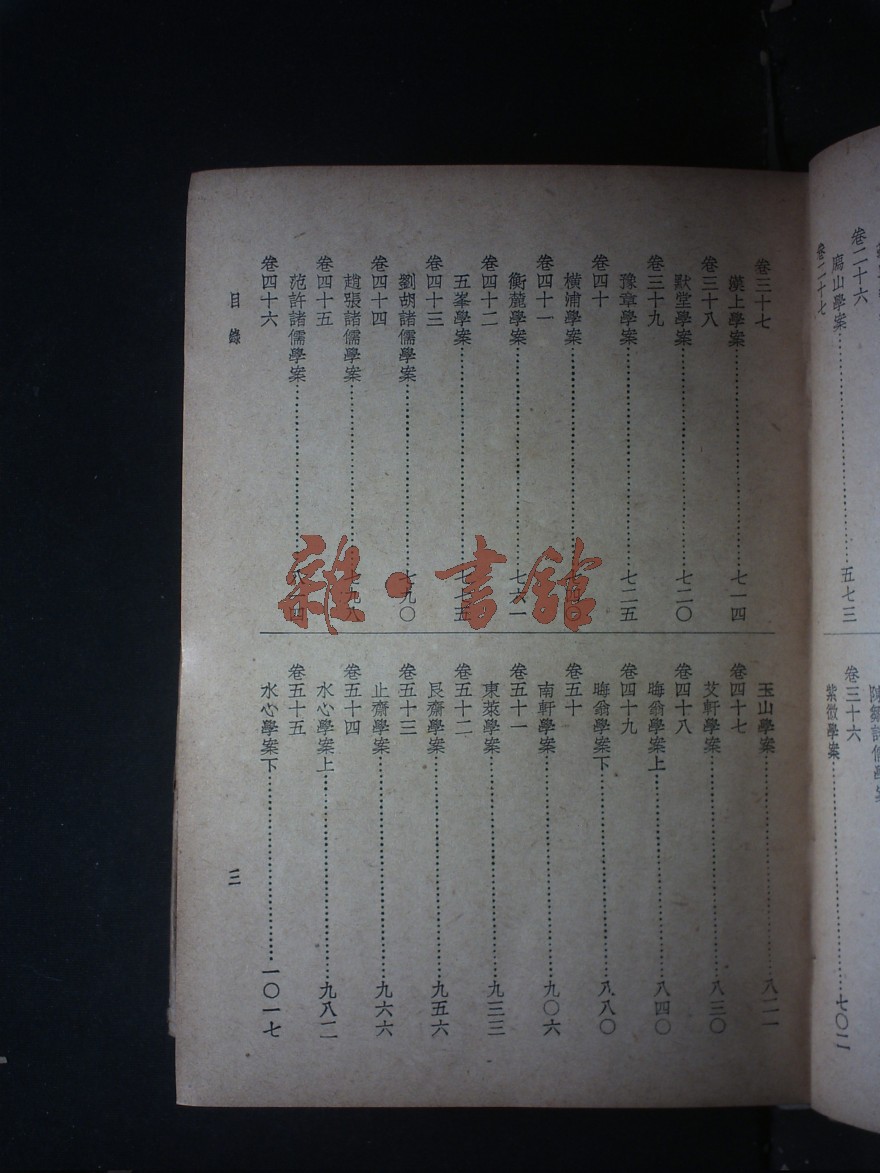 卷二十六
廌山學案……五七三
卷二十七
卷三十六
紫微學案……七〇二
卷三十七
漢上學案……七一四
卷三十八
默堂學案……七二〇
卷三十九
豫章學案……七二五
卷四十
橫浦學案……
卷四十一
衡麓學案……七六一
卷四十二
五峯學案……七七五
卷四十三
劉胡諸儒學案……七九〇
卷四十四
趙張諸儒學案……七九八
卷四十五
范許諸儒學案……
卷四十六
玉山學案……八二一
卷四十七
艾軒學案……八三〇
卷四十八
晦翁學案上……八四〇
卷四十九
晦翁學案下……八八〇
卷五十
南軒學案……九〇六
卷五十一
東萊學案……九三三
卷五十二
艮齋學案……九五六
卷五十三
止齋學案……九六六
卷五十四
水心學案上……九八二
卷五十五
水心學案下……一〇一七
目錄
三
雜·書館